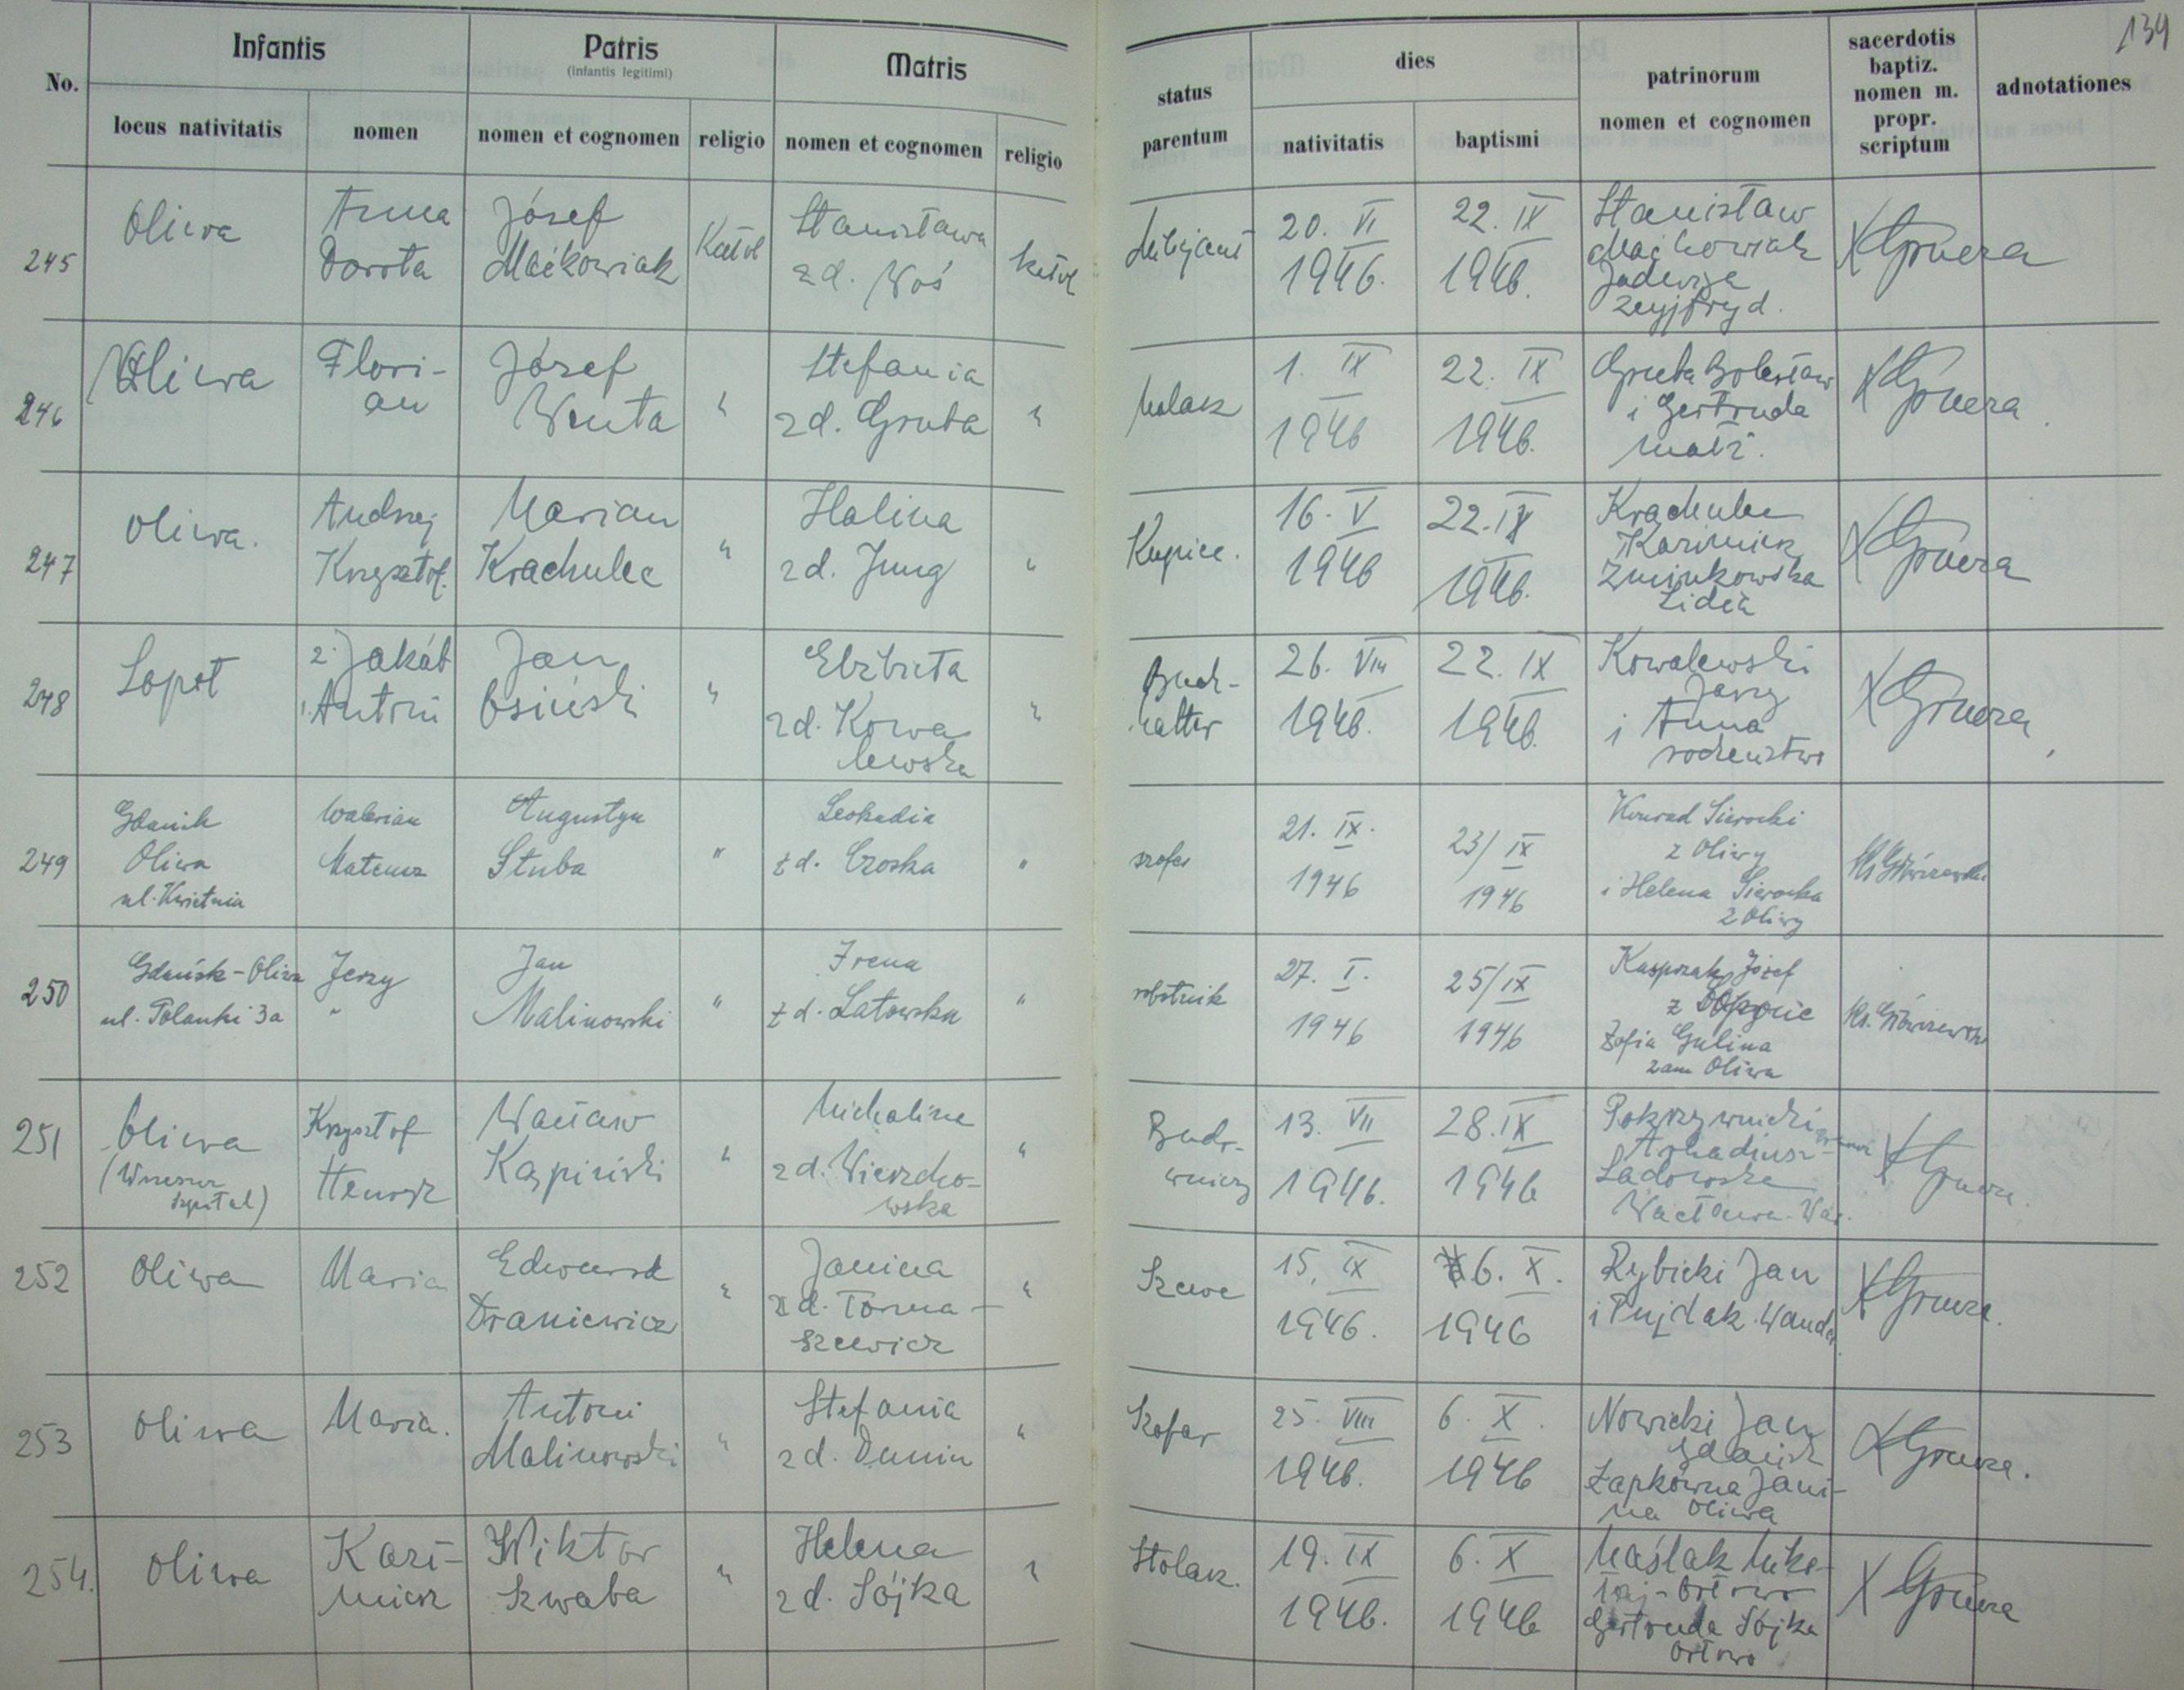 134
No.
Infantis
locus nativitatis
nomen
Patris
(infantis legitimi)
nomen et cognomen
religio
Matris
nomen et cognomen
religio
status
parentum
dies
nativitatis
baptismi
patrinorum
nomen et cognomen
sacerdotis
baptiz.
nomen m.
propr.
scriptum
adnotationes
245
Oliwa
Anna
Dorota
Józef
Maćkowiak
Katol
Stanisława
zd. Woś
katol
20. VI
1946.
22. IX
1946.
Stanisław
Maćkowiak
Jadwiga
246
Oliwa
Flori-
an
Józef
Wenta
"
Stefania
zd. Gruba
"
1. IX
1946
22. IX
1946.
Bolesław
i Gertruda
małż.
247
Oliwa.
Andrzej
Krzysztof.
Marian
Krachulec
"
Halina
zd. Jung
"
Kupiec.
16. V
1946
22. IX
1946.
Krachulec
Kazimierz
Lidia
248
Sopot
2. Jakób
1. Antoni
Jan
Osiński
"
Elżbieta
zd. Kowa
lewska
"
Buch-
halter
26. VIII
1946.
22. IX
1946.
Kowalewski
Jerzy
i Anna
rodzeństwo
249
Gdańsk
Oliwa
ul. Kwietnia
Walerian
Mateusz
Augustyn
Stuba
"
Leokadia
zd. Czoska
"
szofer
21. IX.
1946
23/IX
1946
Konrad Sierocki
z Oliwy
i Helena Sierocka
z Oliwy
250
Gdańsk-Oliwa
ul. Polanki 3a
Jerzy
"
Jan
Malinowski
"
Irena
zd. Latowska
"
robotnik
27. I.
1946
25/IX
1946
Kasprzak Józef
z
Zofia Gulina
zam Oliwa
251
Oliwa
(Wrzeszcz
szpital)
Krzysztof
Henryk
Wacław
Kąpiński
"
Michalina
zd. Wierzcho-
wska
"
Budo-
wniczy
13. VII
1946.
28. IX
1946
Pokrzywnicki
Arkadiusz
Wacława War.
252
Oliwa
Maria
Edward
Draniewicz
"
Janina
zd. Toma-
szewicz
"
Szewc
15. IX
1946.
6. X.
1946
Rybicki Jan
i Pujdak Wanda
253
Oliwa
Maria.
Antoni
Malinowski
"
Stefania
zd. Dunin
"
Szofer
25. VIII
1946.
6. X.
1946
Nowicki Jan
Gdańsk
Łapkówna Jani-
na Oliwa
254.
Oliwa
Kazi-
mierz
Wiktor
Szwaba
"
Helena
zd. Sójka
"
Stolarz.
19. IX
1946.
6. X
1946
Maślak Miko-
łaj - Orłowo
Gertruda Sójka
Orłowo